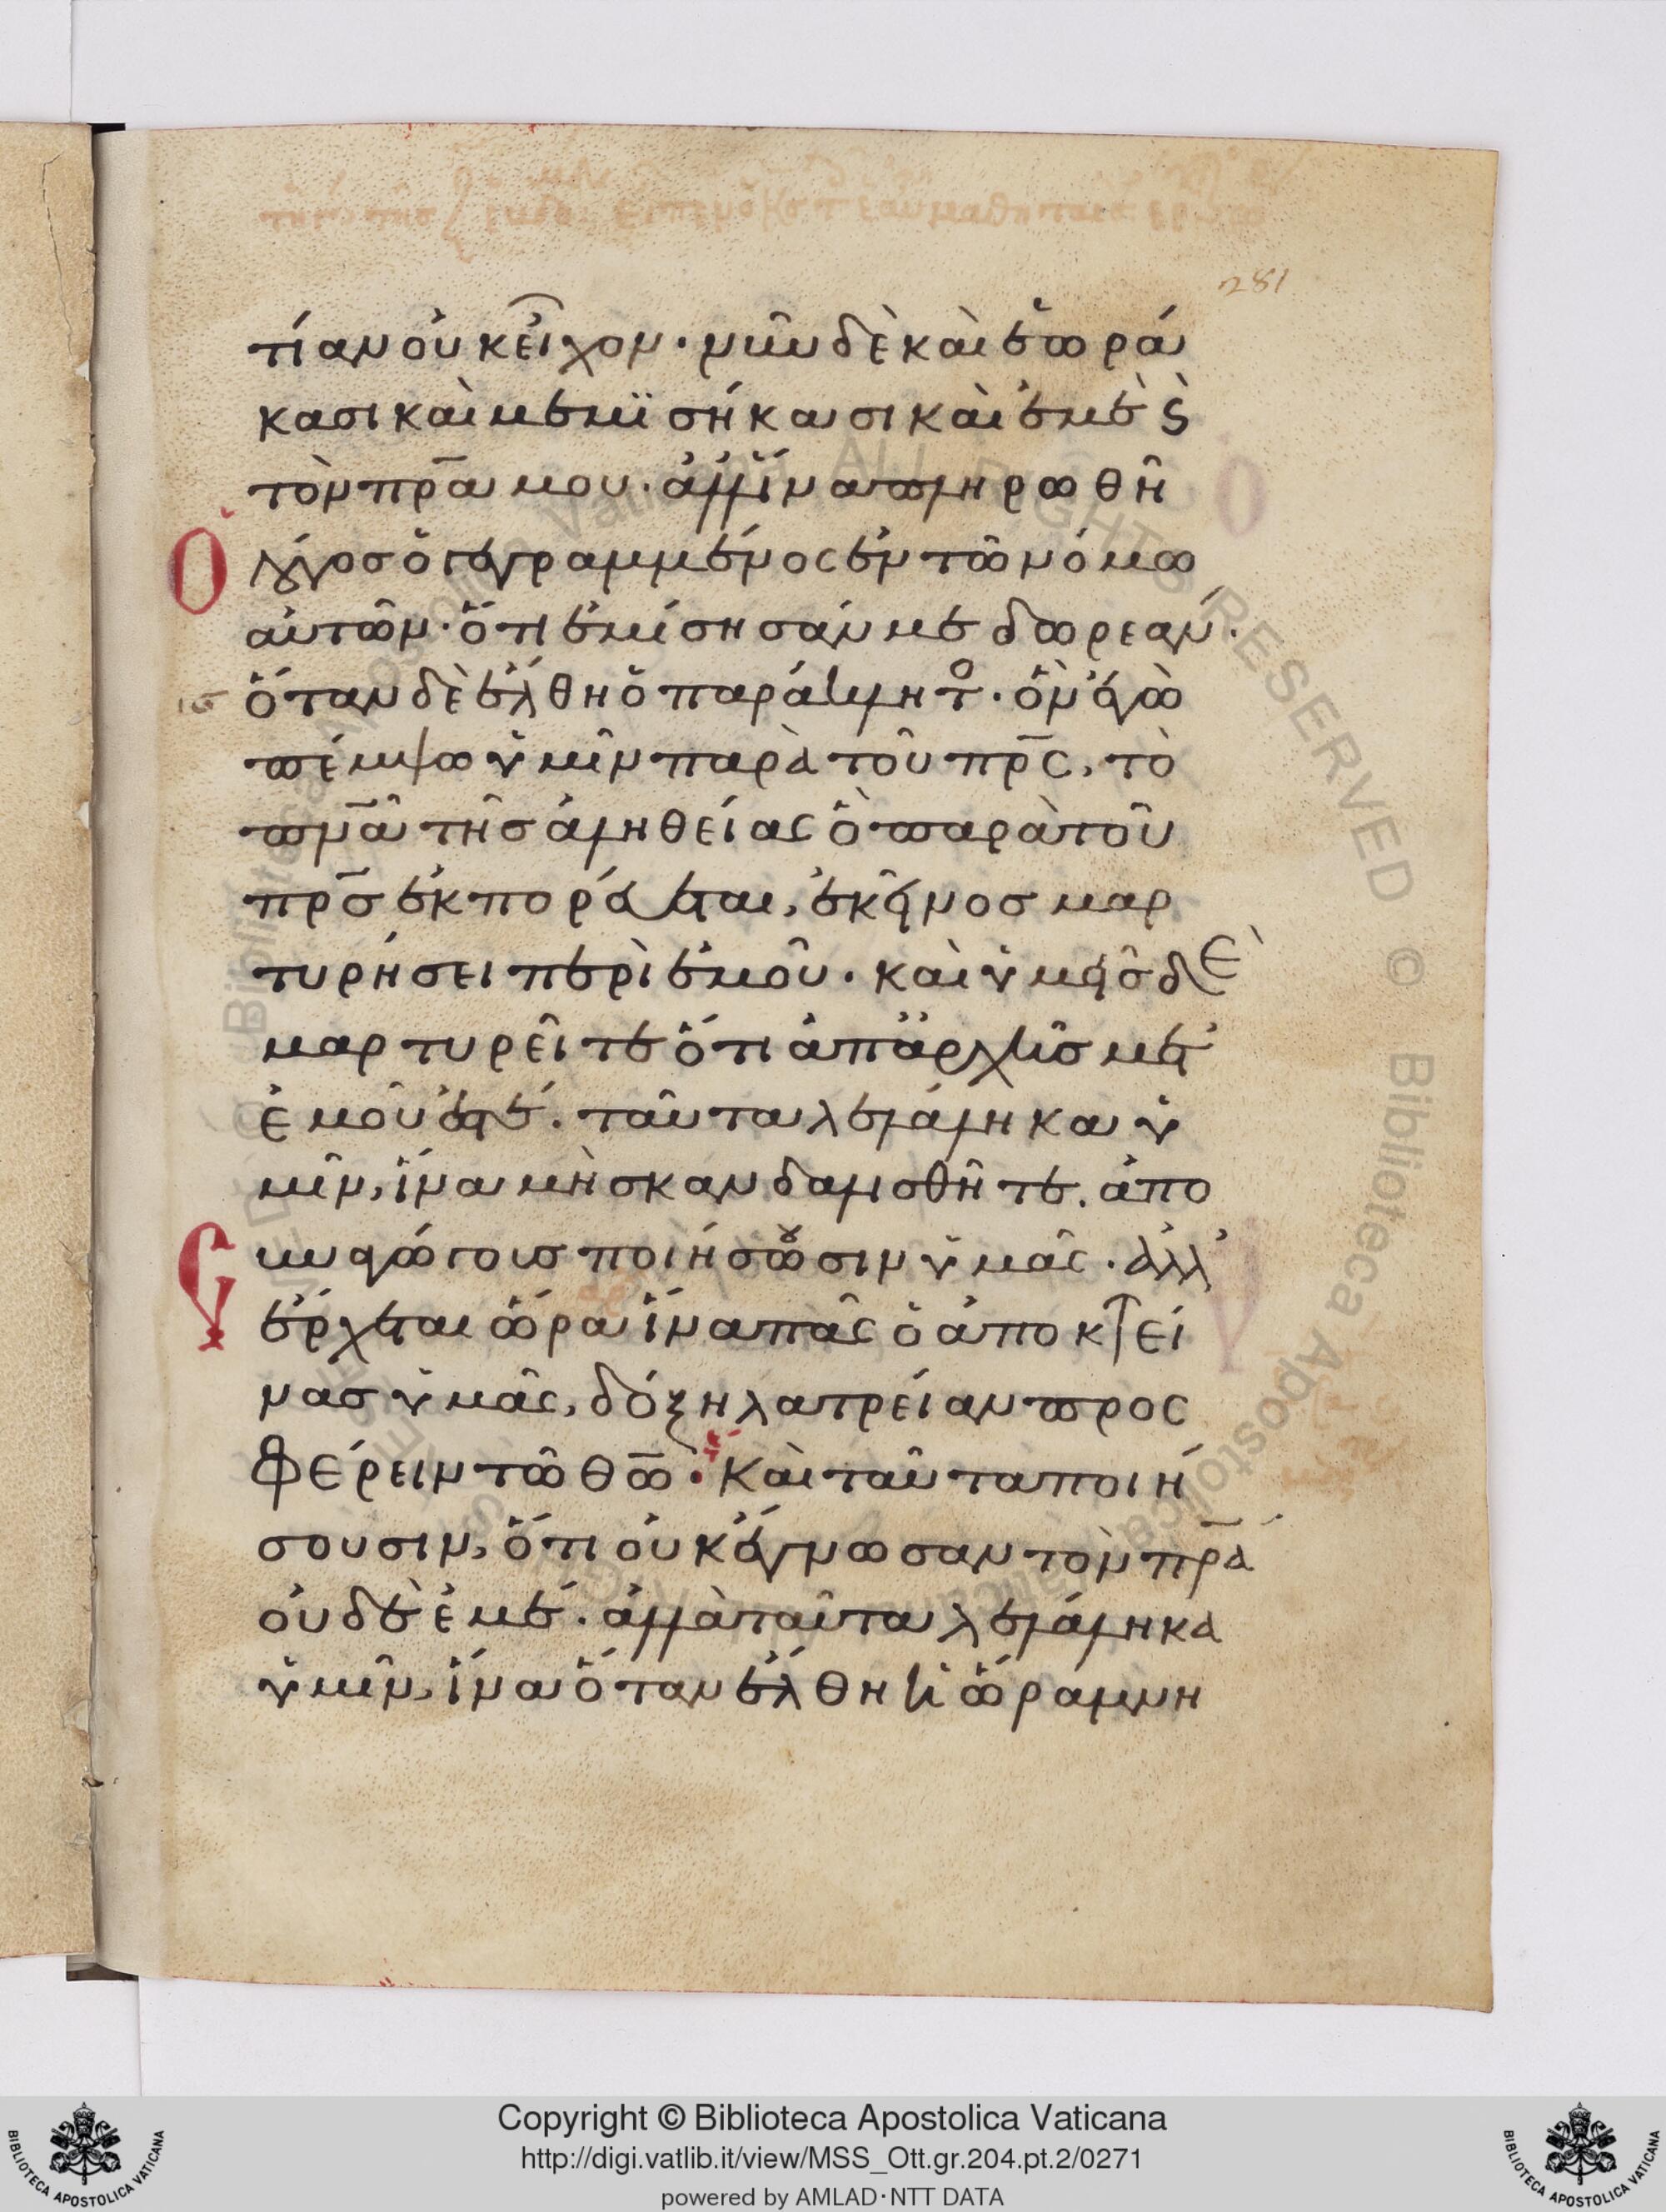 281
τίαν οὐκ εἶχον· νῦν δὲ καὶ ἑωρά
κασι καὶ μεμϊσήκασι καὶ ἐμὲ ς̀
τὸν πρ̅α μου. ἀλλ' ἵνα πληρωθῆ
Ὁ λόγος ὁ γεγραμμένος ἐν τῶ νόμω
αὐτῶν· ὅτι ἐμίσησάν με δωρεάν.
ιϛ ὅταν δὲ ἔλθη ὁ παράκλητο. ὃν ἐγὼ
πέμψω ὑμῖν παρὰ τοῦ πρ̅ς, τὸ
πν̅α τῆς ἀληθείας ὃ παρὰ τοῦ
πρ̅ς ἐκπορεύεται, ἐκεῖνος μαρ
τυρήσει περὶ ἐμοῦ. καὶ ὑμεῖς δὲ
μαρτυρεῖτε ὅτι ἀπ' ἀρχῆς μετ'
ἐμοῦ ἐστέ. ταῦτα λελάληκα ὑ
μῖν, ἵνα μὴ σκανδαλισθῆτε. ἀπο
συναγώγους ποιήσωσιν ὑμᾶς. ἀλλ'
ἔρχεται ὥρα ἵνα πᾶς ὁ ἀποκτεί
νας ὑμᾶς, δόξη λατρείαν προσ
φέρειν τῶ θ̅ω. Καὶ ταῦτα ποιή
σουσιν, ὅτι οὐκ ἔγνωσαν τὸν πρ̅α
οὐδὲ ἐμέ. ἀλλὰ ταῦτα λελάληκα
ὑμῖν, ἵνα ὅταν ἔλθη ἡ ὥρα μνη
Copyright © Biblioteca Apostolica Vaticana
http://digi.vatlib.it/view/MSS_Ott.gr.204.pt.2/0271
powered by AMLAD･NTT DATA
BIBLIOTECA APOSTOLICA VATICANA
BIBLIOTECA APOSTOLICA VATICANA